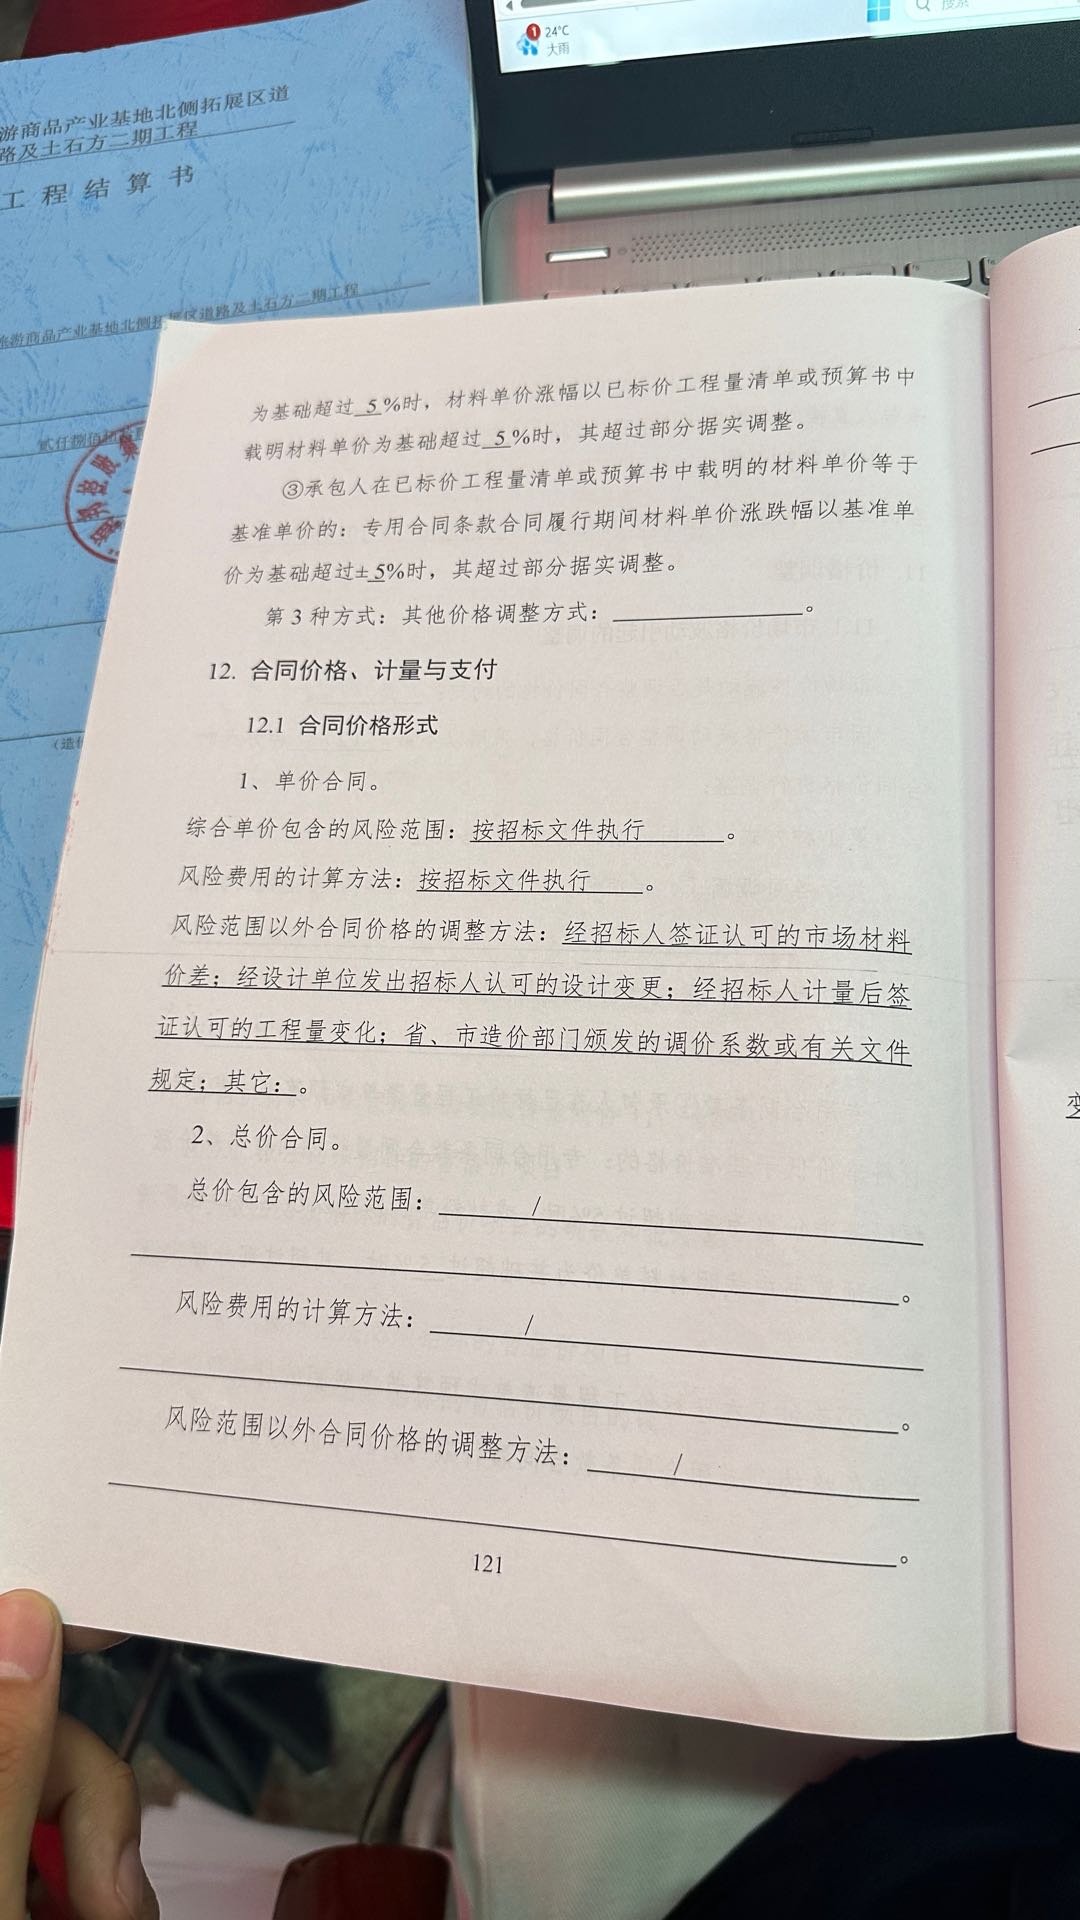 1
24°C
大雨
搜索
游商品产业基地北侧拓展区道
路及土石方二期工程
工程结算书
旅游商品产业基地北侧拓展区道路及土石方二期工程
贰仟捌佰
为基础超过 5 %时，材料单价涨幅以已标价工程量清单或预算书中
载明材料单价为基础超过 5 %时，其超过部分据实调整。
③承包人在已标价工程量清单或预算书中载明的材料单价等于
基准单价的：专用合同条款合同履行期间材料单价涨跌幅以基准单
价为基础超过± 5%时，其超过部分据实调整。
第 3 种方式：其他价格调整方式：。
12. 合同价格、计量与支付
12.1 合同价格形式
1、单价合同。
综合单价包含的风险范围：按招标文件执行。
风险费用的计算方法：按招标文件执行。
风险范围以外合同价格的调整方法：经招标人签证认可的市场材料
价差；经设计单位发出招标人认可的设计变更；经招标人计量后签
证认可的工程量变化；省、市造价部门颁发的调价系数或有关文件
规定；其它：。
2、总价合同。
总价包含的风险范围： /
。
风险费用的计算方法： /
。
风险范围以外合同价格的调整方法： /
。
121